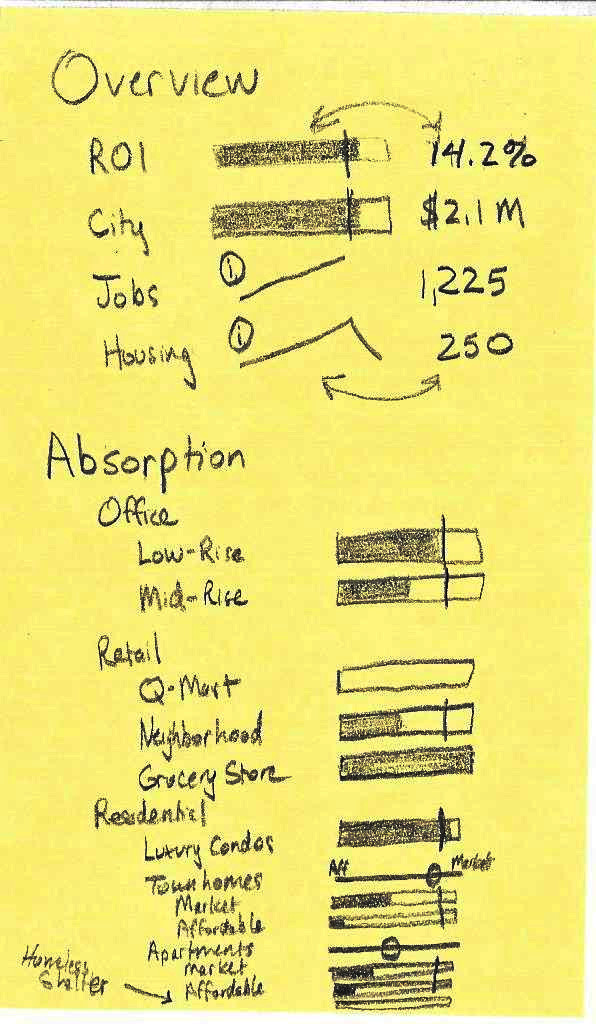 Overview
ROI 14.2%
City $2.1M
Jobs 1,225
Housing 250
Absorption
Office
Low-Rise
Mid-Rise
Retail
Q-Mart
Neighborhood
Grocery Store
Residential
Luxury Condos
Townhomes Aff Market
Market
Affordable
Apartments
Market
Homeless
Shelter
Affordable